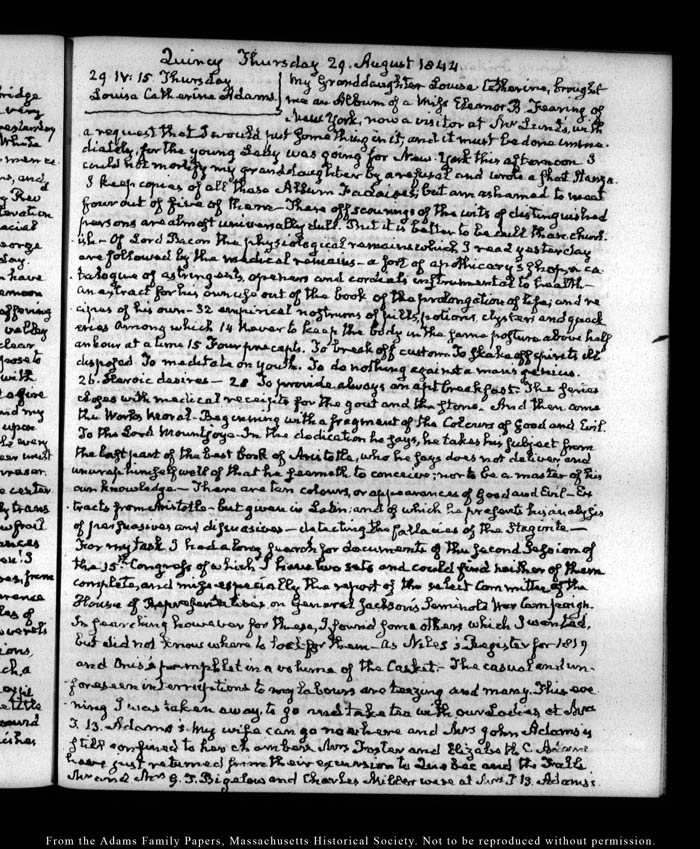 Quincy Thursday 29. August 1844
29 IV: 15 Thursday
Louisa Catherine Adams.
My Granddaughter Louisa Catherine, brought
me an Album of a Miss Eleanor B. Fearing of
New York, now a visitor at Mr Lunt's, with
a request that I would put something in it, and it must be done imme-
diately, for the young Lady was going for New York this afternoon. I
could not mortify my granddaughter by a refusal and wrote a short Stanza
I keep copies of all these Album but am ashamed to meet
four out of five of them — These offscourings of the wits of distinguished
persons are almost universally dull. But it is better to be dull than churl-
ish — Of Lord Bacon the physiological remains which I read yesterday
are followed by the medical remains — a sort of apothecary's shop, a ca-
talogue of astringents, openers and cordials instrumental to health —
An extract for his own use out of the book of the prolongation of life; and re
cipes of his own — 32 empirical nostrums of pills, potions, clysters and quack
eries Among which 14 Never to keep the body in the same posture above half
an hour at a time 15 Four precepts. To break off custom. To shake off spirits ill
disposed. To meditate on youth. To do nothing against a mans genius.
26. Heroic desires — 28 To provide always an apt breakfast. The series
closes with medical receipts for the gout and the stone. And then come
the Works Moral. Beginning with a fragment of the Colours of Good and Evil.
To the Lord Mountjoye. In the dedication he says, he takes his subject from
the last part of the best book of Aristotle, who he says does not deliver and
unwrap himself well of that he seemeth to conceive; nor to be a master of his
own knowledge — There are ten colours, or appearances of Good and Evil — Ex
tracts from Aristotle — but given in Latin, and of which he presents his analysis
of persuasives and dissuasives — detecting the fallacies of the Stagirite —
For my task I had a long search for documents of the second Session of
the 15th Congress of which I have two sets and could find neither of them
complete, and miss especially the report of the select Committee of the
House of Representatives on General Jackson's Seminole War Campaign.
In searching however for these, I found some others which I wanted,
but did not know where to look for them — as Niles's Register for 1819
and Onis's pamphlet in a volume of the Casket. — The casual and un-
foreseen interruptions to my labours are teazing and many. This eve
ning I was taken away, to go and take tea with our Ladies at Mrs
T. B. Adams's. My wife can go no where and Mrs John Adams is
still confined to her chamber. Mrs Foster and Elizabeth C. Adams
have just returned from their excursion to Quebec and the Falls
Mr and Mrs G. T. Bigelow and Charles Miller were at Mrs T B. Adams's
ridge
very
yesterday
White
ns, and
Rev
levation
George
Day.
have
valley
clear
with
a fire
my
upon
every
trans
from
les of
little
From the Adams Family Papers, Massachusetts Historical Society. Not to be reproduced without permission.